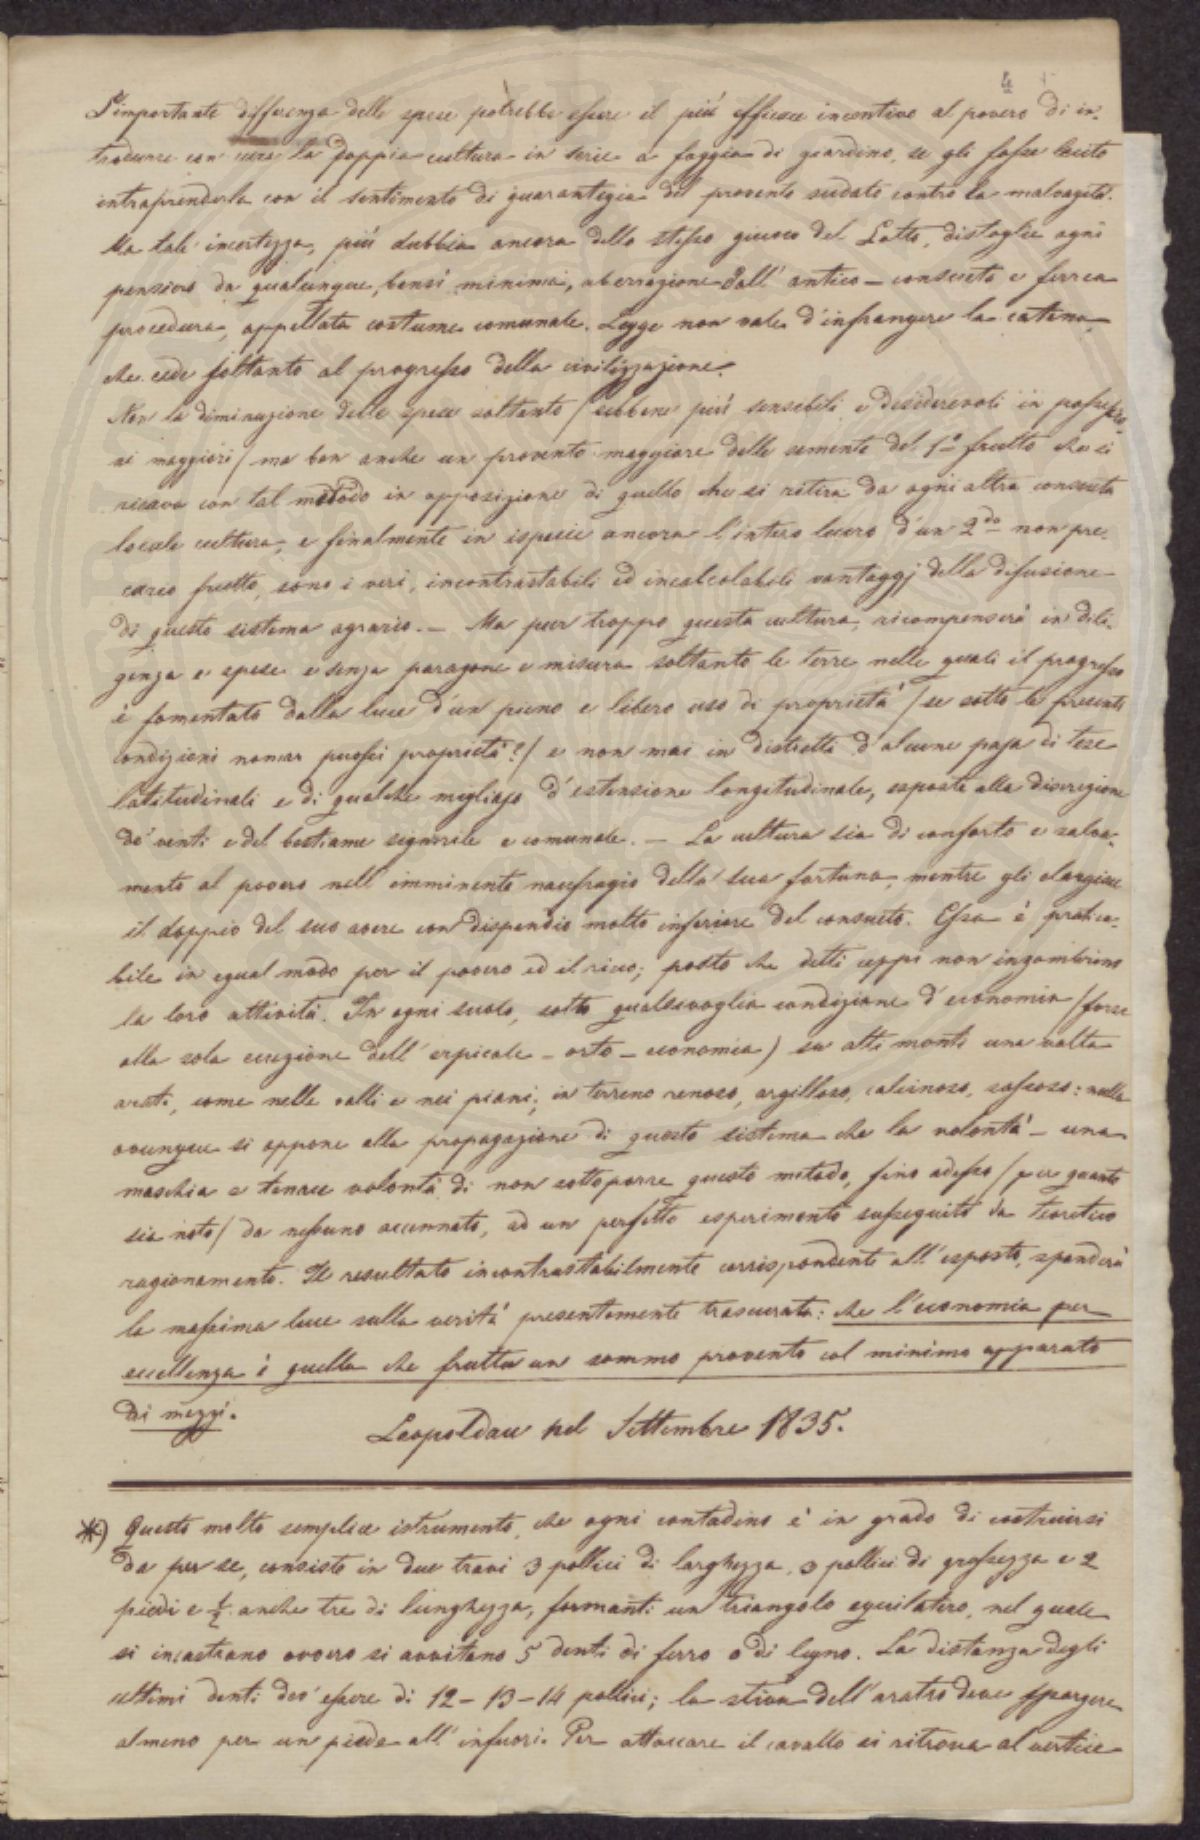 4
L'importante differenza delle spese potrebbe essere il più efficace incentivo al povero di in-
trodurre con cura la doppia cultura in serie a foggia di giardino, se gli fosse lecito
intraprenderla con il sentimento di guarantigia del provento sudato contro la malvagità.
Ma tale incertezza, più dubbia ancora dello stesso giuoco del Lotto, distoglie ogni
pensiero da qualunque, bensì minima, aberrazione dall' antico - consueto e ferrea
procedura, appellata costume comunale. Legge non vale d'infrangere la catena
che cede soltanto al progresso della civilizzazione.
Non la diminuzione delle spese soltanto /sebbene più sensibili e desiderevoli in
ai maggiori/ ma ben anche un provento maggiore delle semente del 1º frutto che si
ricava con tal metodo in opposizione di quello che si ritira da ogni altra consueta
locale cultura; e finalmente in ispecie ancora l'intero lucro d'un 2do non pre-
cario frutto, sono i veri, incontrastabili ed incalcolabili vantaggj della difusione
di questo sistema agrario. — Ma pur troppo questa cultura, ricompenserà in dili-
genza e spese e senza paragone e misura soltanto le terre nelle quali il progresso
è fomentato dalla luce d'un pieno e libero uso di proprietà /se sotto le presenti
condizioni nomar puossi proprietà?/ e non mai in distretti d'alcune paja di tese
latitudinali e di qualche migliajo d'estensione longitudinale, esposte alla discrezione
de' venti e del bestiame signorile e comunale. — La cultura sia di conforto e salva-
mento al povero nell' imminente naufragio della sua fortuna, mentre gli elargisce
il doppio del suo avere con dispendio molto inferiore del consueto. Essa è pratica-
bile in egual modo per il povero ed il ricco; posto che detti ceppi non ingombrino
la loro attività. In ogni suolo, sotto qualsivoglia condizione d'economia /forse
alla sola eccezione dell' - orto - economia) su alti monti una volta
arati, come nelle valli e nei piani; in terreno renoso, argilloso, calcinoso, sassoso: nulla
ovunque si oppone alla propagazione di questo sistema che la volontà - una
maschia e tenace volontà di non sottoporre questo metodo, fino adesso /per quanto
sia noto/ da nessuno accennato, ad un perfetto esperimento susseguito da teoretico
ragionamento. Il resultato incontrastabilmente corrispondente all' esposto, spanderà
la massima luce sulla verità presentemente trascurata: che l'economia per
eccellenza è quella che frutta un sommo provento col minimo apparato
dei mezzi.
Leopoldau nel Settembre 1835.
*) Questo molto semplice istrumento, che ogni contadino è in grado di costruirsi
da per se, consiste in due travi 3 pollici di larghezza, 3 pollici di grossezza e 2
piedi e ½ anche tre di lunghezza, formanti un triangolo equilatero, nel quale
si incastrano ovvero si avvitano 5 denti di ferro o di legno. La distanza degli
ultimi denti dev' essere di 12 - 13 - 14 pollici; la stiva dell' aratro deve sporgere
almeno per un piede all' infuori. Per attaccare il cavallo si ritrova al vertice